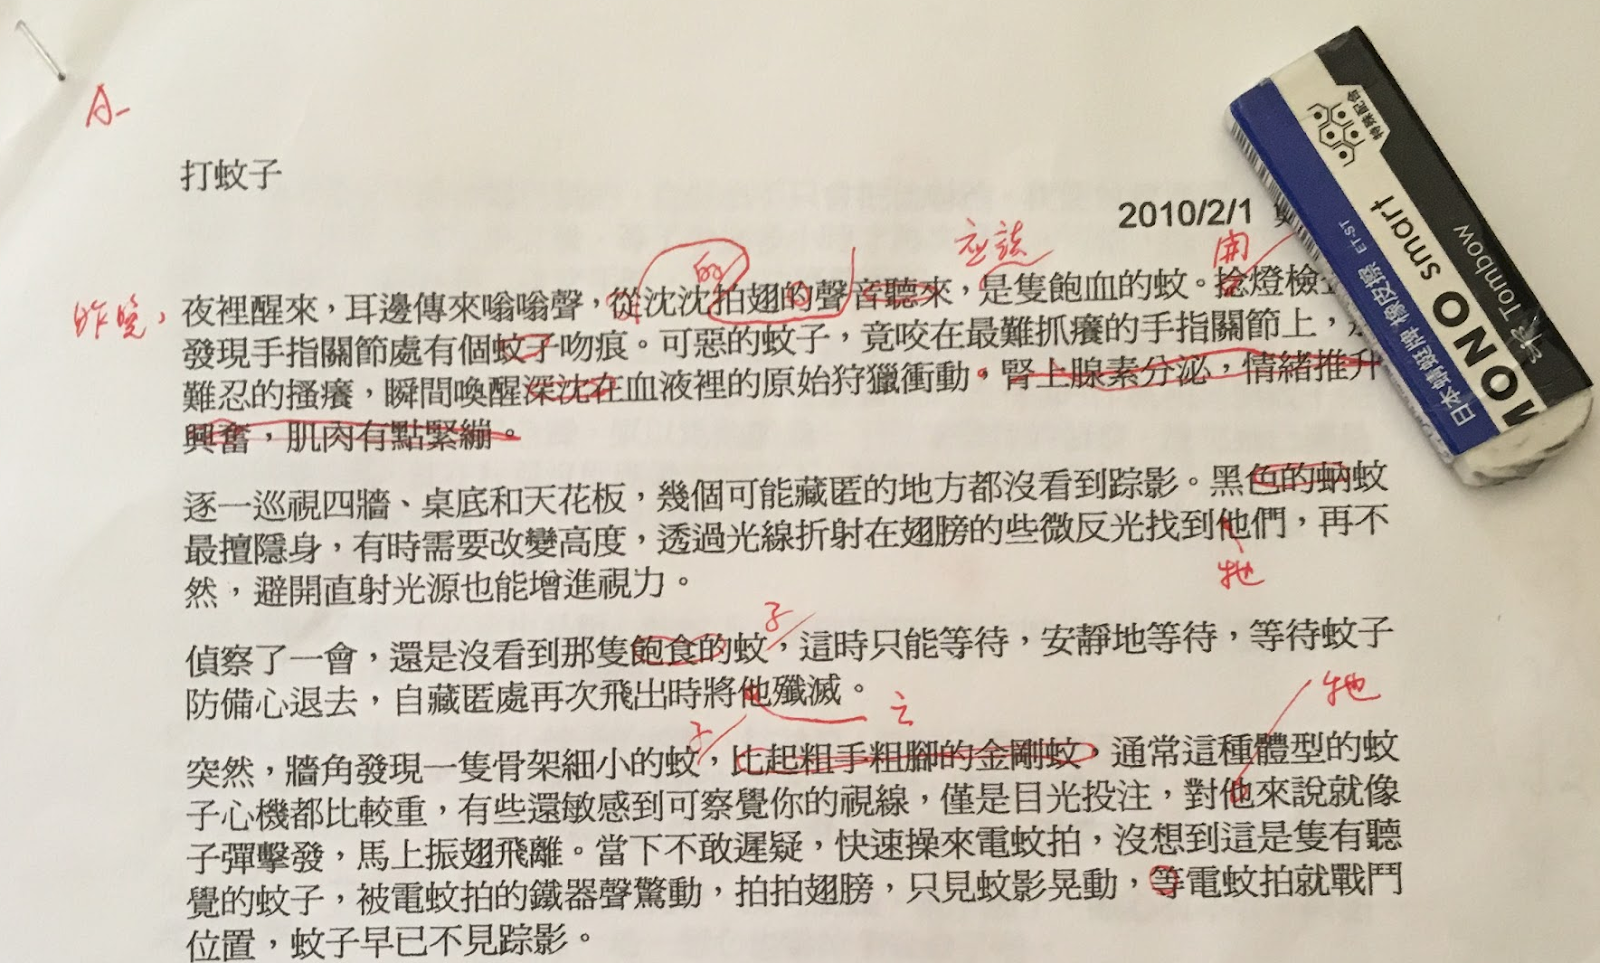 A-
打蚊子
2010/2/1
應該
開
的
昨晚，
夜裡醒來，耳邊傳來嗡嗡聲，從沈沈拍翅的聲音聽來，是隻飽血的蚊。捻燈檢
發現手指關節處有個蚊子吻痕。可惡的蚊子，竟咬在最難抓癢的手指關節上，
難忍的搔癢，瞬間喚醒深沈在血液裡的原始狩獵衝動。腎上腺素分泌，情緒推升
興奮，肌肉有點緊繃。
逐一巡視四牆、桌底和天花板，幾個可能藏匿的地方都沒看到踪影。黑色的蚋蚊
最擅隱身，有時需要改變高度，透過光線折射在翅膀的些微反光找到他們，再不
牠
然，避開直射光源也能增進視力。
子
偵察了一會，還是沒看到那隻飽食的蚊，這時只能等待，安靜地等待，等待蚊子
防備心退去，自藏匿處再次飛出時將他殲滅。
牠
之
子
突然，牆角發現一隻骨架細小的蚊，比起粗手粗腳的金剛蚊，通常這種體型的蚊
子心機都比較重，有些還敏感到可察覺你的視線，僅是目光投注，對他來說就像
子彈擊發，馬上振翅飛離。當下不敢遲疑，快速操來電蚊拍，沒想到這是隻有聽
覺的蚊子，被電蚊拍的鐵器聲驚動，拍拍翅膀，只見蚊影晃動，等電蚊拍就戰鬥
位置，蚊子早已不見踪影。
特殊配合
日本蜻蜓牌 橡皮擦 ET-ST
MONO smart
Tombow